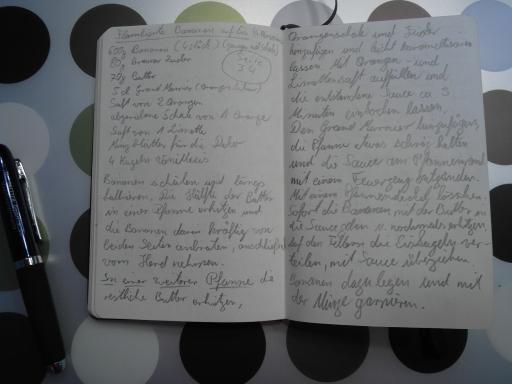 Flambierte Bananen auf
600g Bananen (6 Stück)
80g Brauner Zucker
70g Butter
5 cl Grand Marnier (Orangenlikör)
Saft von 2 Orangen
abgeriebene Schale von 1 Orange
Saft von 1 Limette
Minzblätter für die Deko
4 Kugeln Vanilleeis
Seite
34
Bananen schälen und längs
halbieren. Die Hälfte der Butter
in einer Pfanne erhitzen und
die Bananen darin kräftig von
beiden Seiten anbraten, anschließend
vom Herd nehmen.
In einer weiteren Pfanne die
restliche Butter erhitzen,
Orangenschale und Zucker
hinzufügen und leicht karamellisieren
lassen. Mit Orangen- und
Limettensaft auffüllen und
die entstandene Sauce ca 3
Minuten einkochen lassen.
Den Grand Marnier hinzufügen,
die Pfanne etwas schräg halten
und die Sauce am Pfannenrand
mit einem Feuerzeug entzünden.
Mit einem Pfannendeckel löschen.
Sofort die Bananen mit der Butter in
die Sauce geben u. nochmals erhitzen.
Auf den Tellern die Eiskugeln ver-
teilen, mit Sauce überziehen
Bananen dazu legen und mit
der Minze garnieren.